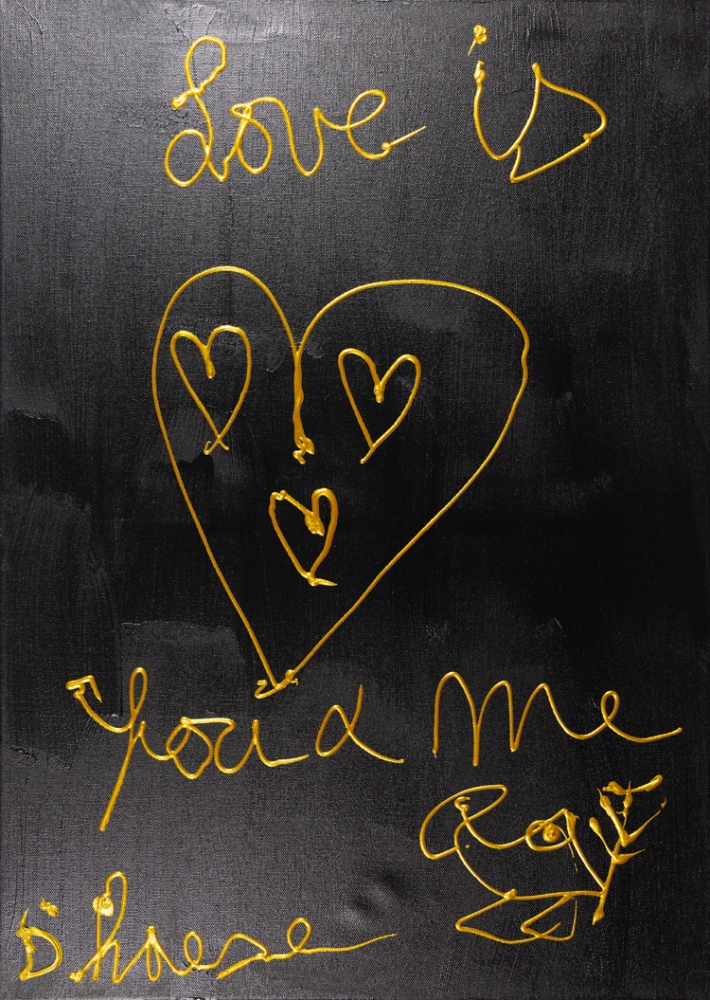 Love is
You & Me
Roy
D'haese